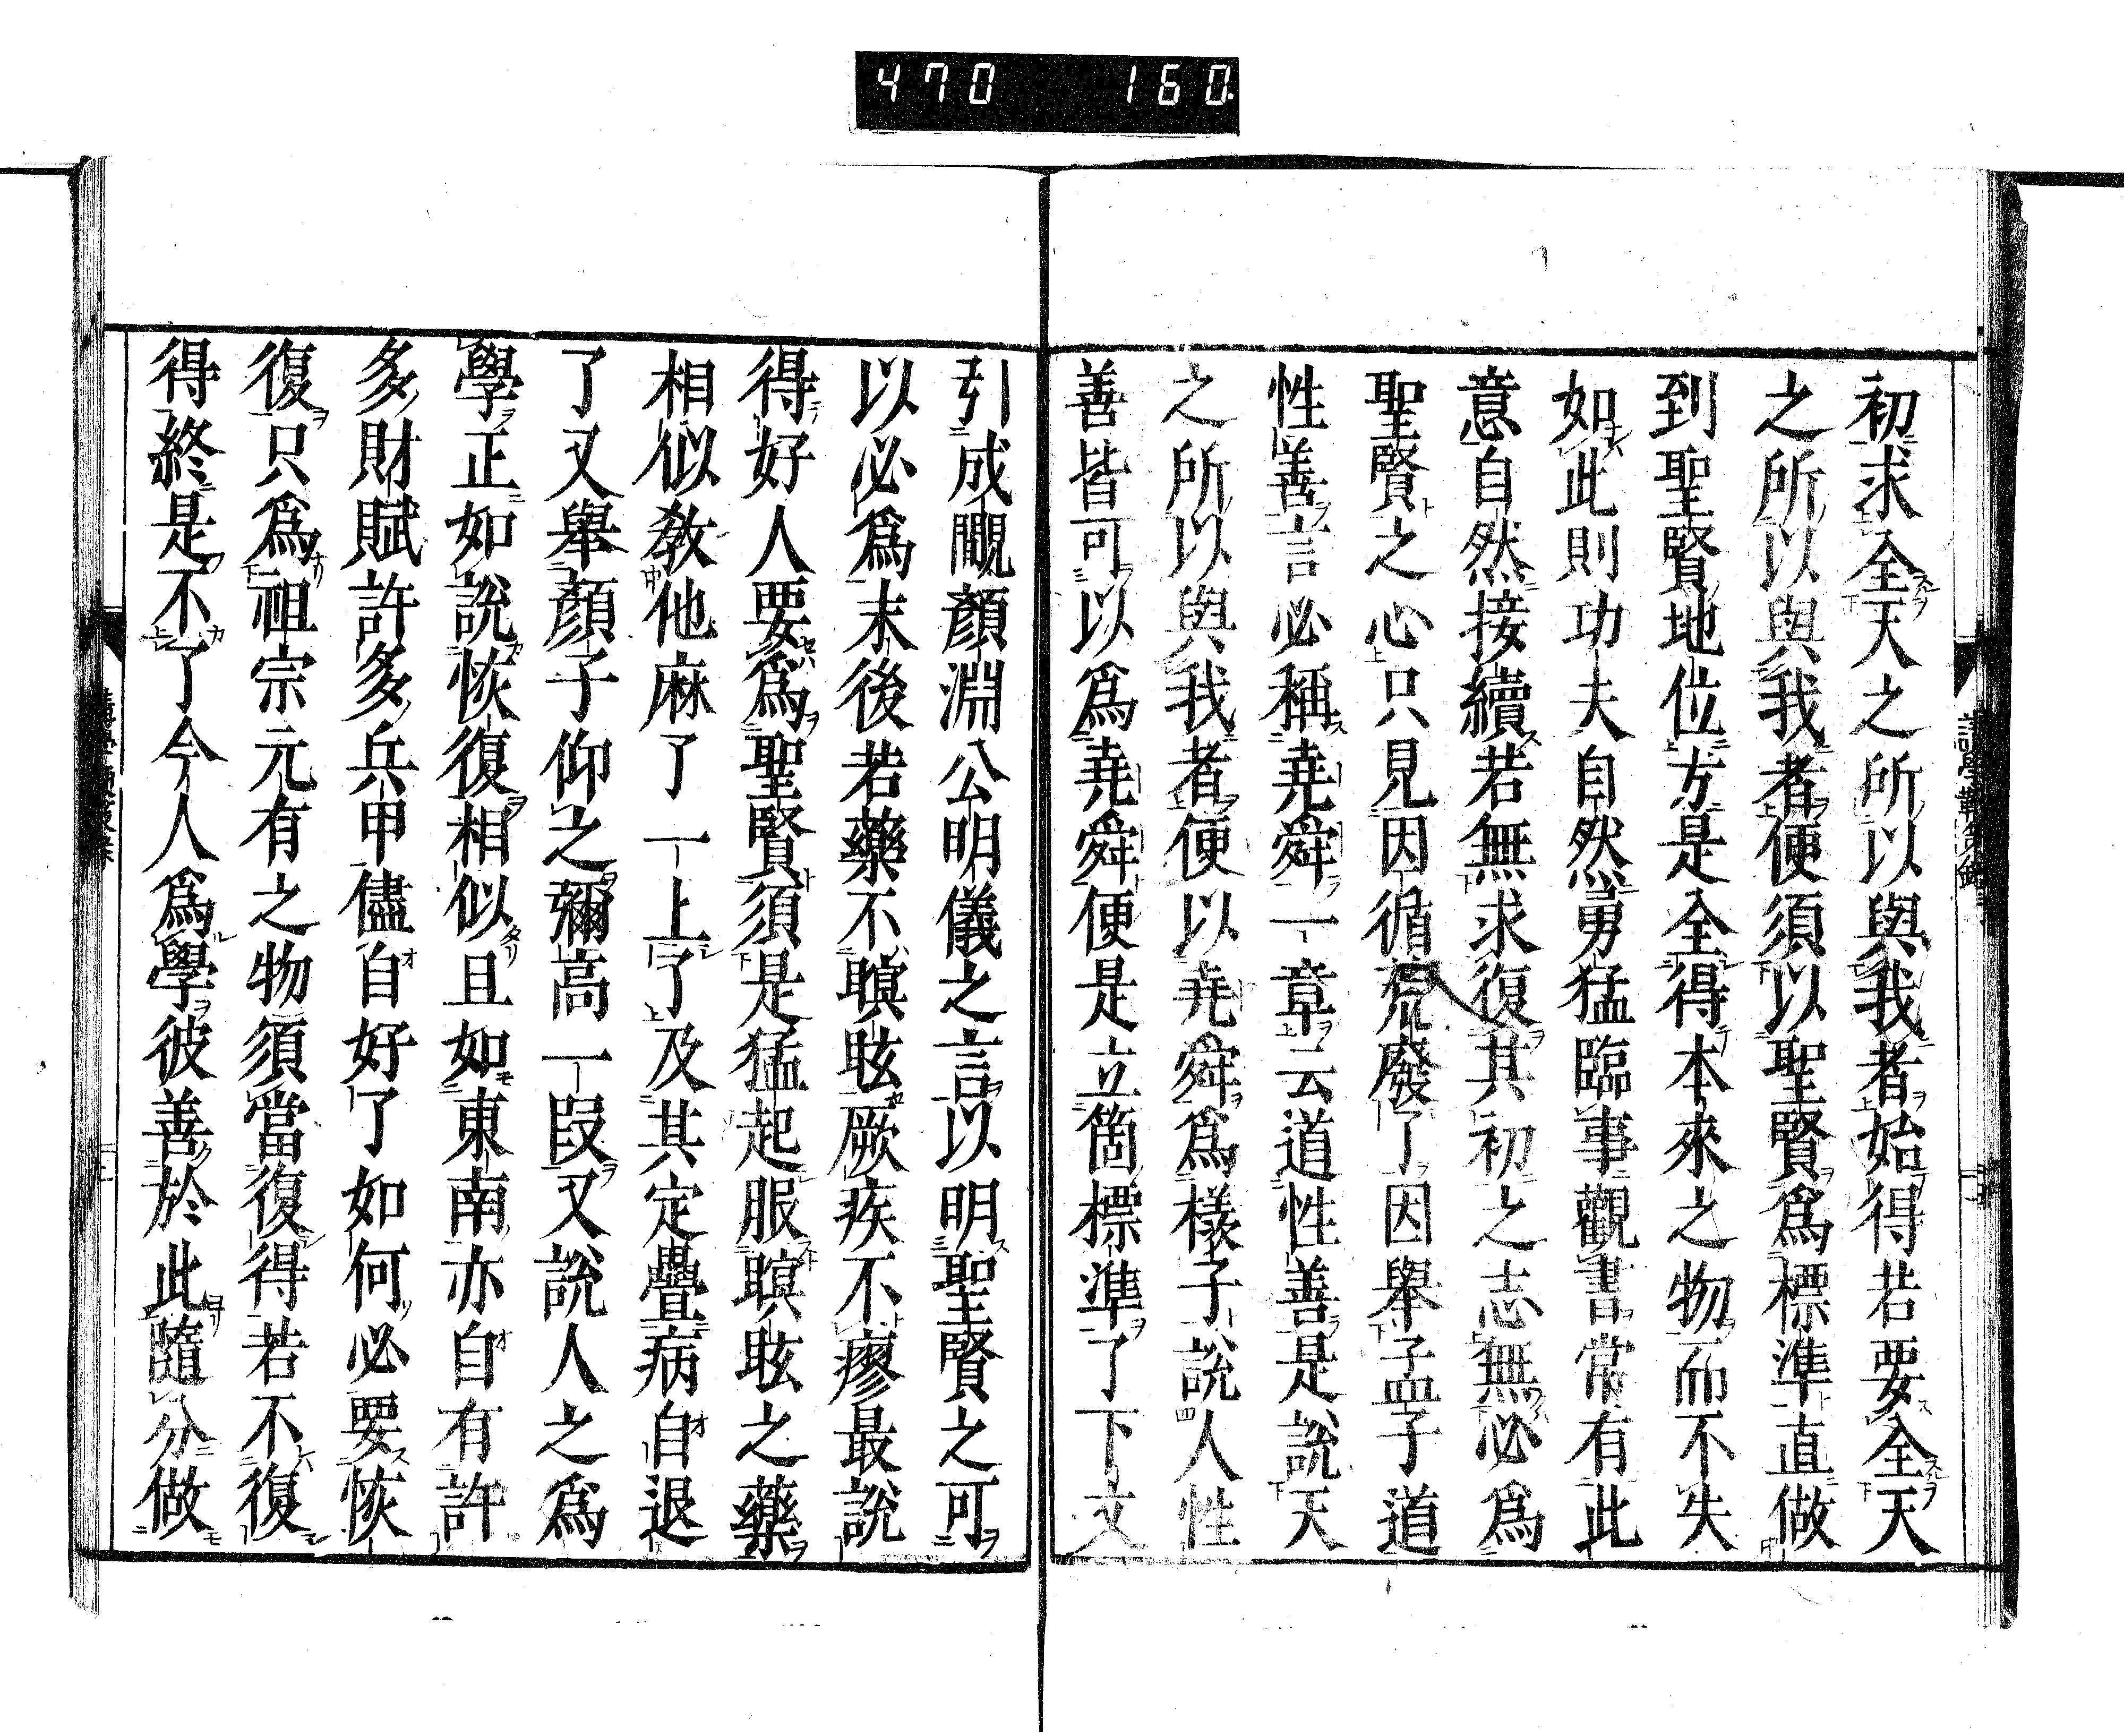 470 160
初求全天之所以與我者始得若要全天
之所以與我者便須以聖賢爲標準直做
到聖賢地位方是全得本來之物而不失
如此則功夫自然勇猛臨事觀書常有此
意自然接續若無求復其初之志無必爲
聖賢之心只見因循荒廢了因舉孟子道
性善言必稱堯舜一章云道性善是說天
之所以與我者便以堯舜爲樣子說人性
善皆可以爲堯舜便是立箇標準了下文
引成覸顏淵公明儀之言以明聖賢之可
以必爲末後若藥不瞑眩厥疾不瘳最說
得好人要爲聖賢須是猛起服瞑眩之藥
相似教他麻了一上了及其定疊病自退
了又舉顏子仰之彌高一段又說人之爲
學正如說恢復相似且如東南亦自有許
多財賦許多兵甲儘自好了如何必要恢
復只爲祖宗元有之物須當復得若不復
得終是不了今人爲學彼善於此隨分做